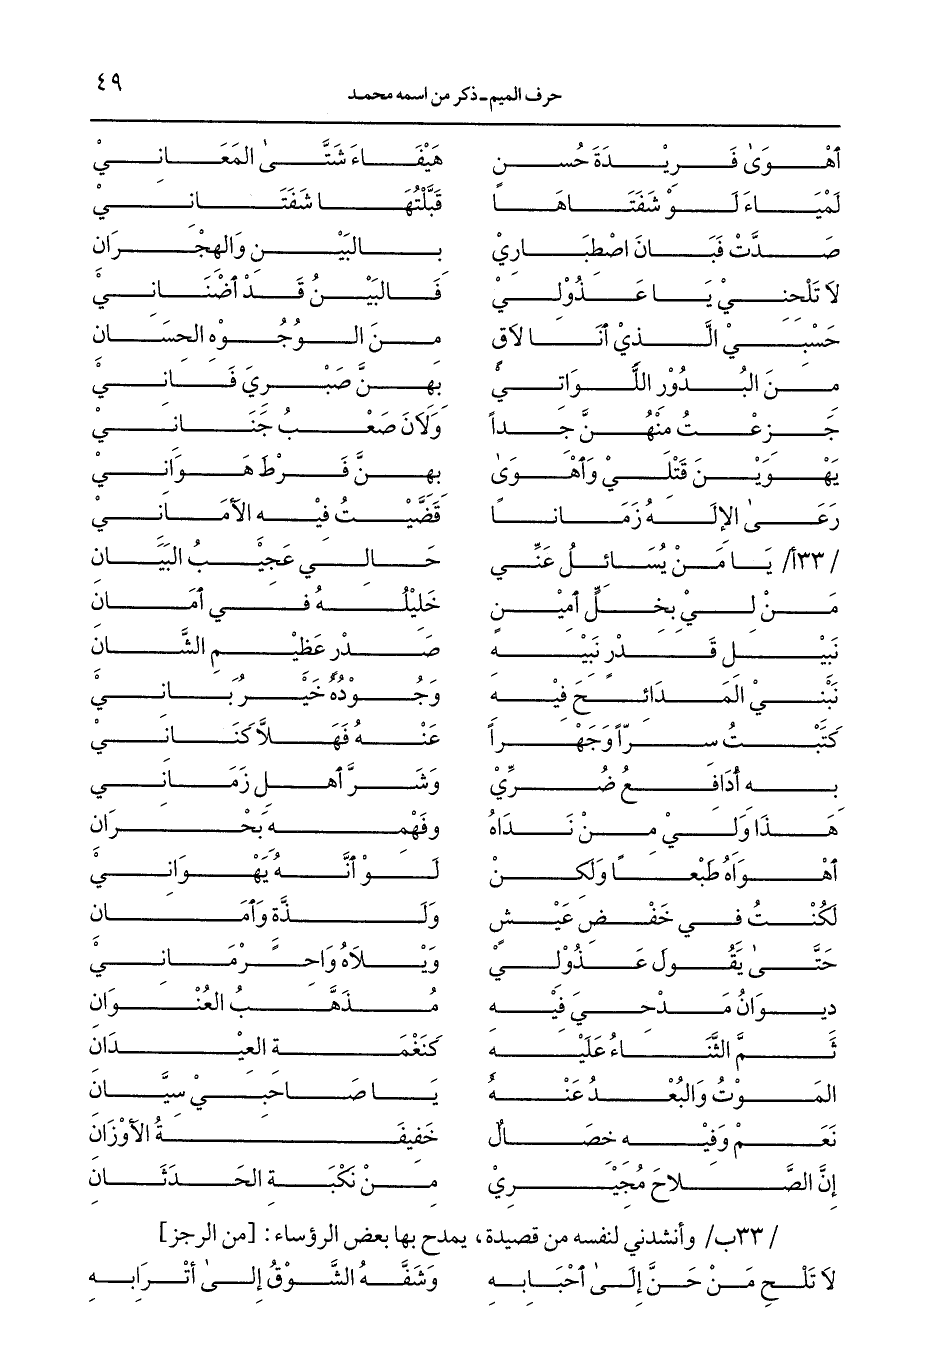 حرف الميم ـ ذكر من اسمه محمد ٤٩
أهْوَىٰ فَرِيْدَةَ حُسنٍ هَيْفَاءَ شَتَّىٰ المَعَانِيْ
لَمْيَاءَ لَوْ شَفَتَاهَا قَبَّلْتُهَا شَفَتَانِيْ
صَدَّتْ فَبَانَ اصْطِبَارِيْ بِالبَيْنِ وَالهِجْرَانِ
لاَ تَلْحِنِيْ يَا عَذُوْلِيْ فَالبَيْنُ قَدْ أضْنَانِيْ
حَسْبِيْ الَّذِيْ أنَا لاَقٍ مِنَ الوُجُوْهِ الحِسَانِ
مِنَ البُدُوْرِ اللَّوَاتِيْ بِهِنَّ صَبْرِيَ فَانِيْ
جَزِعْتُ مِنْهُنَّ جِداً وَلاَنَ صَعْبُ جَنَانِيْ
يَهْوَيْنَ قَتْلِيْ وَأهْوَىٰ بِهِنَّ فَرْطَ هَوَانِيْ
رَعَىٰ الإلَهُ زَمَاناً قَضَّيْتُ فِيْهِ الأمَانِيْ
/٣٣أ/ يَا مَنْ يُسَائِلُ عَنِّي حَالِي عَجِيْبُ البَيَانِ
مَنْ لِيْ بِخِلٍّ أمِيْنٍ خَلِيْلُهُ فِي أمَانِ
نَبِيْلِ قَدْرٍ نَبِيْهٍ صَدْرٍ عَظِيْمِ الشَّانِ
نَبْنِيْ المَدَائِحَ فِيْهِ وَجُوْدُهُ خَيْرُ بَانِيْ
كَتَبْتُ سِرّاً وَجَهْراً عَنْهُ فَهَلاَّ كَنَانِيْ
بِهِ أُدَافِعُ ضُرِّيْ وَشَرَّ أهلِ زَمَانِيْ
هَذَا وَلِيْ مِنْ نَدَاهُ وفَهْمِهِ بَحْرَانِ
أهْوَاهُ طَبْعاً وَلَكِنْ لَوْ أنَّهُ يَهْوَانِيْ
لَكُنْتُ فِي خَفْضِ عَيْشٍ وَلَذَّةٍ وَأمَانِ
حَتَّىٰ يَقُوْلَ عَذُوْلِيْ وَيْلاَهُ وَاحِرْمَانِيْ
دِيوَانُ مَدْحِيَ فِيْهِ مُذَهَّبُ العُنْوَانِ
ثَمَّ الثَّنَاءُ عَلَيْهِ كَنَغْمَةِ العِيْدَانِ
المَوْتُ وَالبُعْدُ عَنْهُ يَا صَاحِبِيْ سِيَّانِ
نَعَمْ وَفِيْهِ خِصَالٌ خَفِيفَةُ الأوْزَانِ
إنَّ الصَّلاحَ مُجِيْرِيْ مِنْ نَكْبَةِ الحَدَثَانِ
/٣٣ب/ وأنشدني لنفسه من قصيدة، يمدح بها بعض الرؤساء: [من الرجز]
لاَ تَلْحِ مَنْ حَنَّ إلَىٰ أحْبَابِهِ وَشَفَّهُ الشَّوْقُ إلىٰ أتْرَابِهِ